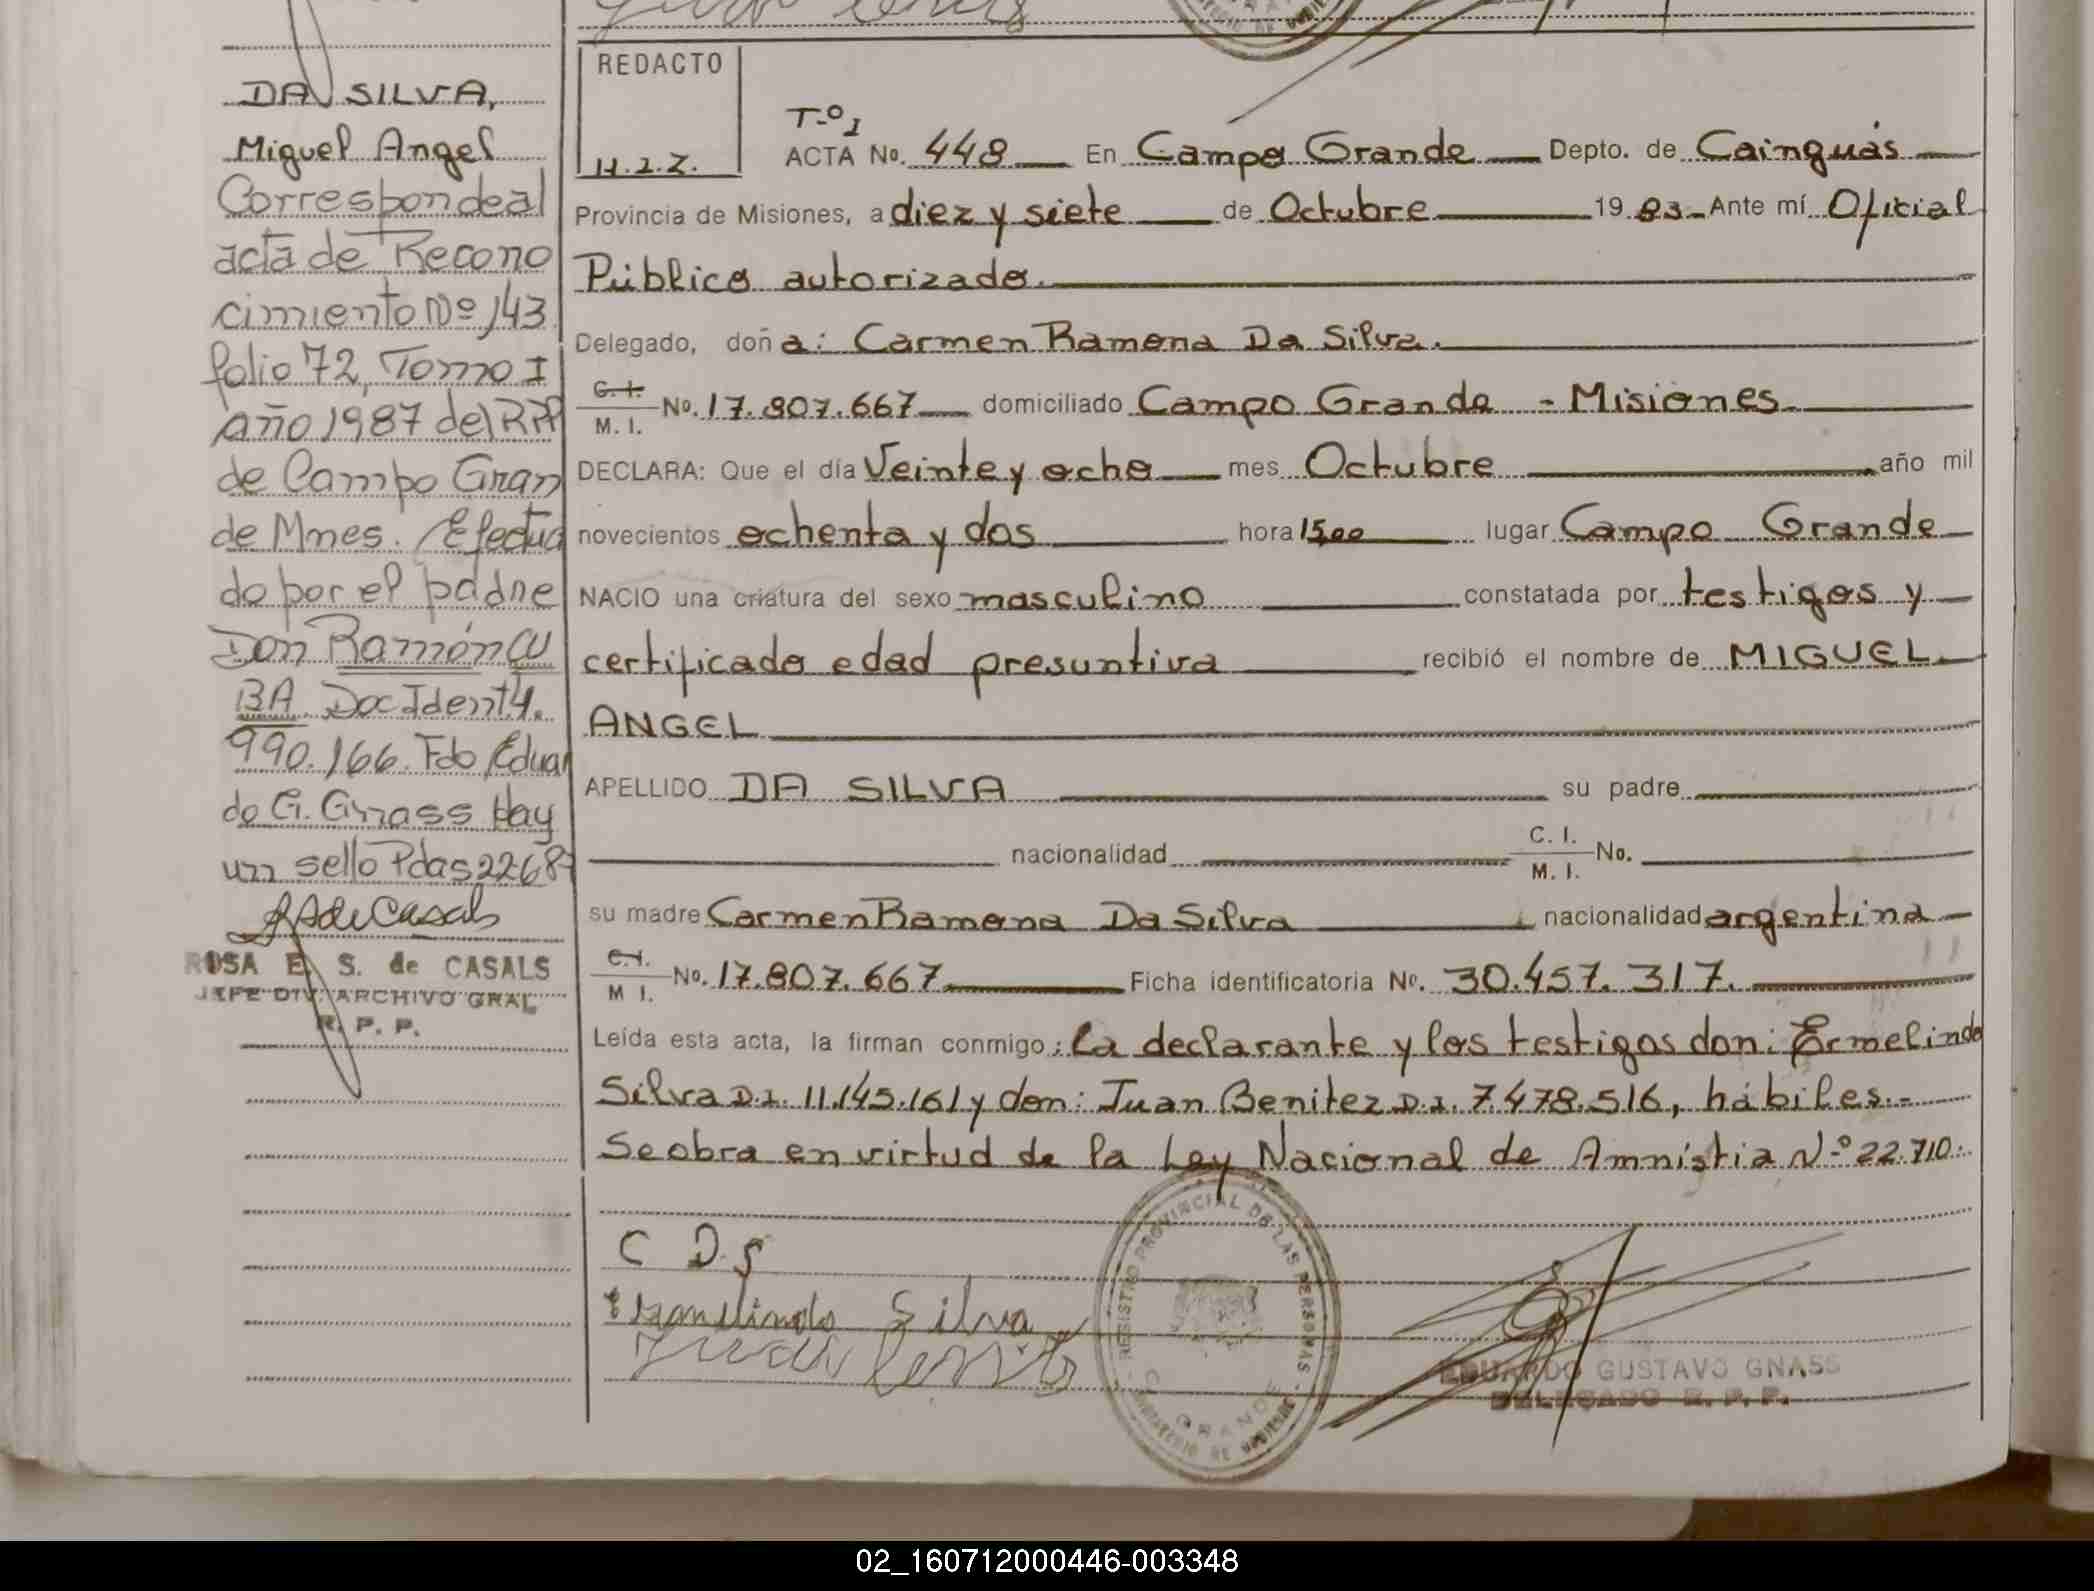 DA SILVA,
Miguel Angel
Corresponde al
acta de Recono
cimiento Nº 143
folio 72, Tomo I
Año 1987 del RPP
de Campo Gran
de Mnes. Efectua
do por el padre
Don Ramón CU
BA. Doc Ident 4.
990.166. Fdo Eduar
do G. Gnass Hay
un sello Pdas 2268
ROSA E. S. de CASALS
JEFE DIV. ARCHIVO GRAL
R. P. P.
REDACTO
H.I.Z.
T-º1
ACTA No. 448 En Campo Grande Depto. de Cainguás
Provincia de Misiones, a diez y siete de Octubre 19 83 Ante mí Oficial
Público autorizado.
Delegado, doña: Carmen Ramona Da Silva.
C. I.
M. I. No. 17.807.667 domiciliado Campo Grande - Misiones
DECLARA: Que el día Veinte y ocho mes Octubre año mil
novecientos ochenta y dos hora 15,00 lugar Campo Grande
NACIO una criatura del sexo masculino constatada por testigos y
certificado edad presuntiva recibió el nombre de MIGUEL
ANGEL
APELLIDO DA SILVA su padre
nacionalidad C. I.
M. I. No.
su madre Carmen Ramona Da Silva nacionalidad argentina
C. I.
M I. No. 17.807.667 Ficha identificatoria No. 30.457.317.
Leída esta acta, la firman conmigo: La declarante y los testigos don: Ermelindo
Silva D.I. 11.145.161 y don: Juan Benitez D.I. 7.478.516, hábiles.-
Se obra en virtud de la Ley Nacional de Amnistia N-º 22.710.
C D S
Ermelindo Silva
REGISTRO PROVINCIAL DE LAS PERSONAS
GRANDE
EDUARDO GUSTAVO GNASS
DELEGADO R. P. P.
02_160712000446-003348